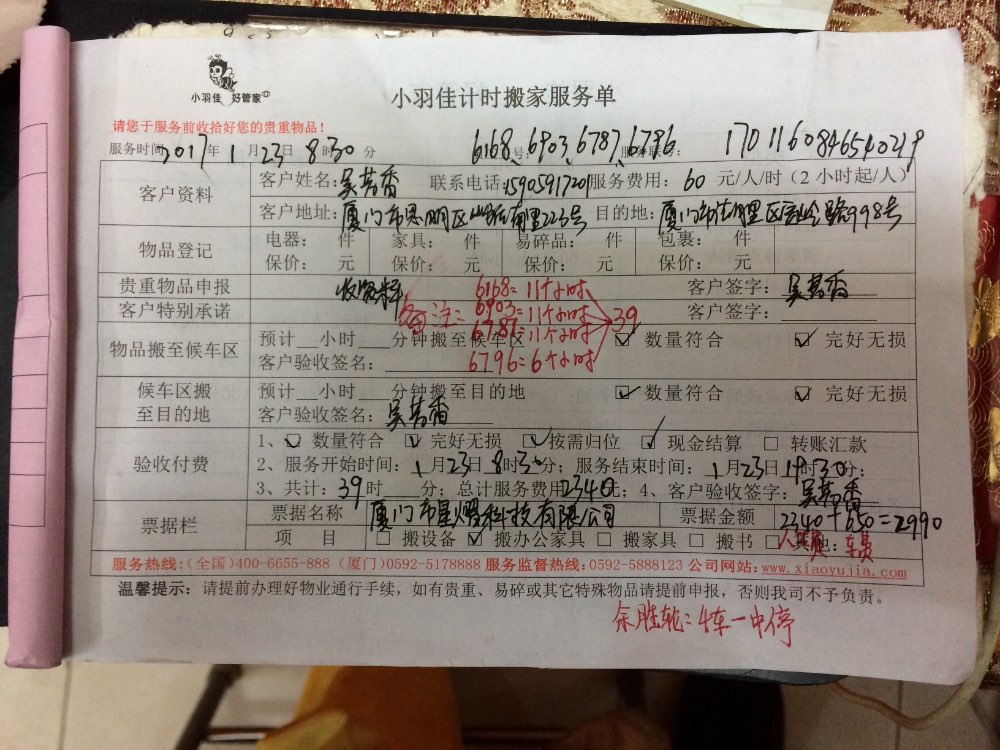 小羽佳 好管家
小羽佳计时搬家服务单
请您于服务前收拾好您的贵重物品！
服务时间 2017年1月23日8时30分 6168、6903、6787、6786 1701160846540219
客户资料 客户姓名： 联系电话：15905917201 服务费用：60元/人/时（2小时起/人）
客户地址：厦门市思明区 南里223号 目的地：厦门市 区 路998号
物品登记 电器： 件 家具： 件 易碎品： 件 包裹： 件
保价： 元 保价： 元 保价： 元 保价： 元
贵重物品申报 6168=11个小时 客户签字：
客户特别承诺 备注：6903=11个小时 39 客户签字：
物品搬至候车区 预计__小时___分钟搬至候车区 11个小时 ☑ 数量符合 ☑ 完好无损
客户验收签名： 6796=6个小时
候车区搬至目的地 预计__小时___分钟搬至目的地 ☑ 数量符合 ☑ 完好无损
客户验收签名：
验收付费 1、☑ 数量符合 ☑ 完好无损 ☑ 按需归位 ☑ 现金结算 □ 转账汇款
2、服务开始时间：1月23日8时30分；服务结束时间：1月23日19时30分；
3、共计：39时___分；总计服务费用2340元；4、客户验收签字：
票据栏 票据名称 厦门市星 科技有限公司 票据金额 2340+650=2990
项 目 □ 搬设备 ☑ 搬办公家具 □ 搬家具 □ 搬书 □ 其他： 车费
服务热线：(全国)400-6655-888 (厦门)0592-5178888 服务监督热线：0592-5888123 公司网站：www.xiaoyujia.com
温馨提示：请提前办理好物业通行手续，如有贵重、易碎或其它特殊物品请提前申报，否则我司不予负责。
余胜轮：4车一中停